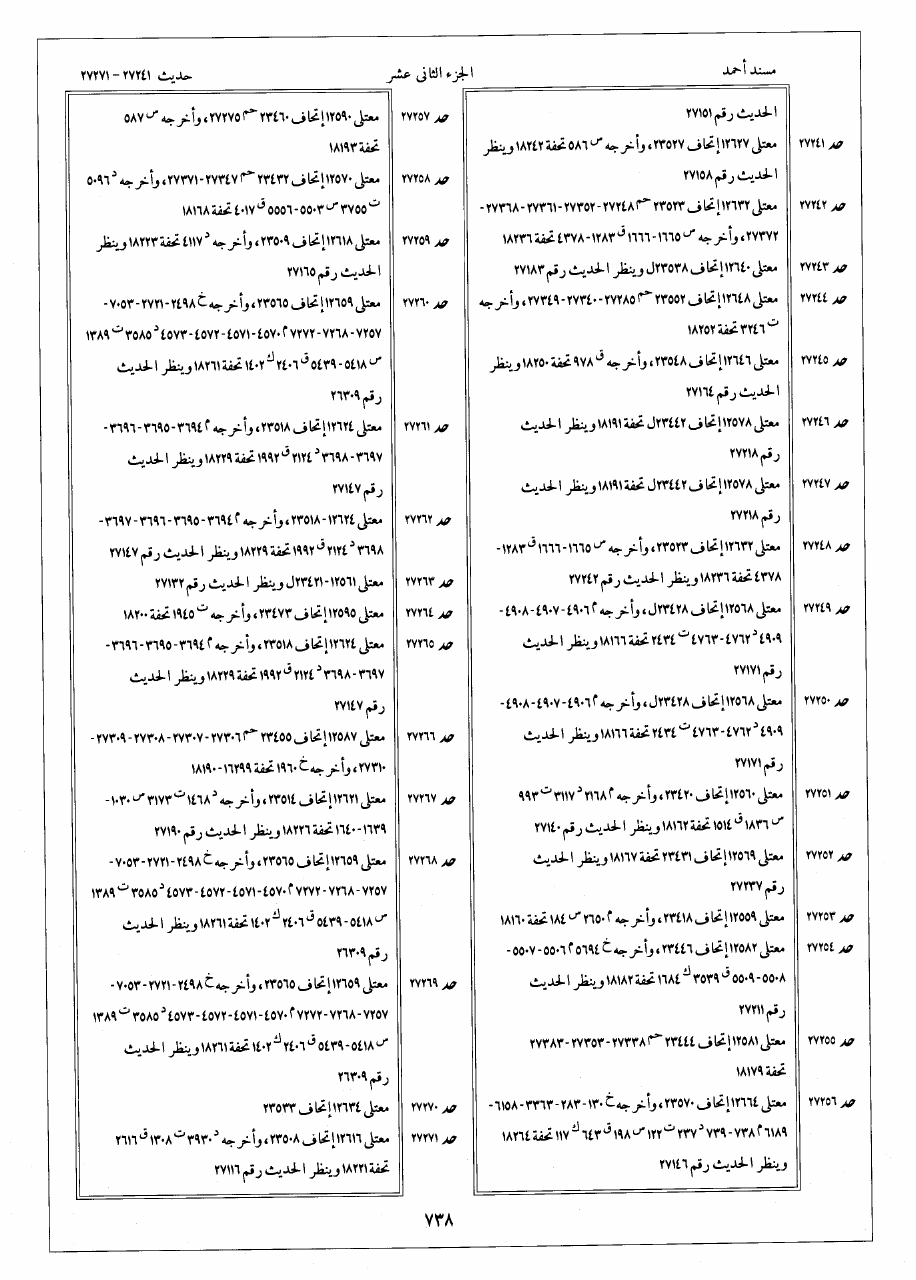 مسند أحمد
الجزء الثانى عشر
حديث ٢٧٢٤١ – ٢٧٢٧١
الحديث رقم ٢٧١٥١
حد ٢٧٢٤١ معتلى ١٢٦٢٧ إتحاف ٢٣٥٢٧، وأخرجه س ٥٨٦ تحفة ١٨٢٤٢ وينظر
الحديث رقم ٢٧١٥٨
حد ٢٧٢٤٢ معتلى ١٢٦٣٢ إتحاف ٢٣٥٢٣ حم ٢٧٢٤٨-٢٧٣٥٢-٢٧٣٦١-٢٧٣٦٨-
٢٧٣٧٢، وأخرجه س ١٦٦٥-١٦٦٦ ق ١٢٨٣-٤٣٧٨ تحفة ١٨٢٣٦
حد ٢٧٢٤٣ معتلى ١٢٦٤٠ إتحاف ٢٣٥٣٨ل وينظر الحديث رقم ٢٧١٨٣
حد ٢٧٢٤٤ معتلى ١٢٦٤٨ إتحاف ٢٣٥٥٢ حم ٢٧٢٨٥-٢٧٣٤٠-٢٧٣٤٩، وأخرجه
ت ٣٢٤٦ تحفة ١٨٢٥٢
حد ٢٧٢٤٥ معتلى ١٢٦٤٦ إتحاف ٢٣٥٤٨، وأخرجه ق ٩٧٨ تحفة ١٨٢٥٠ وينظر
الحديث رقم ٢٧١٦٤
حد ٢٧٢٤٦ معتلى ١٢٥٧٨ إتحاف ٢٣٤٤٢ل تحفة ١٨١٩١ وينظر الحديث
رقم ٢٧٢١٨
حد ٢٧٢٤٧ معتلى ١٢٥٧٨ إتحاف ٢٣٤٤٢ل تحفة ١٨١٩١ وينظر الحديث
رقم ٢٧٢١٨
حد ٢٧٢٤٨ معتلى ١٢٦٣٢ إتحاف ٢٣٥٢٣، وأخرجه س ١٦٦٥-١٦٦٦ ق ١٢٨٣-
٤٣٧٨ تحفة ١٨٢٣٦ وينظر الحديث رقم ٢٧٢٤٢
حد ٢٧٢٤٩ معتلى ١٢٥٦٨ إتحاف ٢٣٤٢٨ل، وأخرجه م ٤٩٠٦-٤٩٠٧-٤٩٠٨-
٤٩٠٩ د ٤٧٦٢-٤٧٦٣ ت ٢٤٣٤ تحفة ١٨١٦٦ وينظر الحديث
رقم ٢٧١٧١
حد ٢٧٢٥٠ معتلى ١٢٥٦٨ إتحاف ٢٣٤٢٨ل، وأخرجه م ٤٩٠٦-٤٩٠٧-٤٩٠٨-
٤٩٠٩ د ٤٧٦٢-٤٧٦٣ ت ٢٤٣٤ تحفة ١٨١٦٦ وينظر الحديث
رقم ٢٧١٧١
حد ٢٧٢٥١ معتلى ١٢٥٦٠ إتحاف ٢٣٤٢٠، وأخرجه م ٢١٦٨ د ٣١١٧ ت ٩٩٣
س ١٨٣٦ ق ١٥١٤ تحفة ١٨١٦٢ وينظر الحديث رقم ٢٧١٤٠
حد ٢٧٢٥٢ معتلى ١٢٥٦٩ إتحاف ٢٣٤٣١ تحفة ١٨١٦٧ وينظر الحديث
رقم ٢٧٢٣٧
حد ٢٧٢٥٣ معتلى ١٢٥٥٩ إتحاف ٢٣٤١٨، وأخرجه م ٢٦٥٠ س ١٨٤ تحفة ١٨١٦٠
حد ٢٧٢٥٤ معتلى ١٢٥٨٢ إتحاف ٢٣٤٤٦، وأخرجه خ ٥٦٩٤ م ٥٥٠٦-٥٥٠٧-
٥٥٠٨-٥٥٠٩ ق ٣٥٣٩ ك ١٦٨٤ تحفة ١٨١٨٢ وينظر الحديث
رقم ٢٧٢١١
حد ٢٧٢٥٥ معتلى ١٢٥٨١ إتحاف ٢٣٤٤٤ حم ٢٧٣٣٨-٢٧٣٥٣-٢٧٣٨٣
تحفة ١٨١٧٩
حد ٢٧٢٥٦ معتلى ١٢٦٦٤ إتحاف ٢٣٥٧٠، وأخرجه خ ١٣٠-٢٨٣-٣٣٦٣-٦١٥٨-
٦١٨٩ م ٧٣٨-٧٣٩ د ٢٣٧ ت ١٢٢ س ١٩٨ ق ٦٤٣ ك ١١٧ تحفة ١٨٢٦٤
وينظر الحديث رقم ٢٧١٤٦
حد ٢٧٢٥٧ معتلى ١٢٥٩٠ إتحاف ٢٣٤٦٠ حم ٢٧٢٧٥، وأخرجه س ٥٨٧
تحفة ١٨١٩٣
حد ٢٧٢٥٨ معتلى ١٢٥٧٠ إتحاف ٢٣٤٣٢ حم ٢٧٣٤٧-٢٧٣٧١، وأخرجه د ٥٠٩٦
ت ٣٧٥٥ س ٥٥٠٣-٥٥٥٦ ق ٤٠١٧ تحفة ١٨١٦٨
حد ٢٧٢٥٩ معتلى ١٢٦١٨ إتحاف ٢٣٥٠٩، وأخرجه د ٤١١٧ تحفة ١٨٢٢٣ وينظر
الحديث رقم ٢٧١٦٥
حد ٢٧٢٦٠ معتلى ١٢٦٥٩ إتحاف ٢٣٥٦٥، وأخرجه خ ٢٤٩٨-٢٧٢١-٧٠٥٣-
٧٢٥٧-٧٢٦٨-٧٢٧٢ م ٤٥٧٠-٤٥٧١-٤٥٧٢-٤٥٧٣ د ٣٥٨٥ ت ١٣٨٩
س ٥٤١٨-٥٤٣٩ ق ٢٤٠٦ ك ١٤٠٢ تحفة ١٨٢٦١ وينظر الحديث
رقم ٢٦٣٠٩
حد ٢٧٢٦١ معتلى ١٢٦٢٤ إتحاف ٢٣٥١٨، وأخرجه م ٣٦٩٤-٣٦٩٥-٣٦٩٦-
٣٦٩٧-٣٦٩٨ د ٢١٢٤ ق ١٩٩٢ تحفة ١٨٢٢٩ وينظر الحديث
رقم ٢٧١٤٧
حد ٢٧٢٦٢ معتلى ١٢٦٢٤-٢٣٥١٨، وأخرجه م ٣٦٩٤-٣٦٩٥-٣٦٩٦-٣٦٩٧-
٣٦٩٨ د ٢١٢٤ ق ١٩٩٢ تحفة ١٨٢٢٩ وينظر الحديث رقم ٢٧١٤٧
حد ٢٧٢٦٣ معتلى ١٢٥٦١-٢٣٤٢١ل وينظر الحديث رقم ٢٧١٣٢
حد ٢٧٢٦٤ معتلى ١٢٥٩٥ إتحاف ٢٣٤٧٣، وأخرجه ت ١٩٤٥ تحفة ١٨٢٠٠
حد ٢٧٢٦٥ معتلى ١٢٦٢٤ إتحاف ٢٣٥١٨، وأخرجه م ٣٦٩٤-٣٦٩٥-٣٦٩٦-
٣٦٩٧-٣٦٩٨ د ٢١٢٤ ق ١٩٩٢ تحفة ١٨٢٢٩ وينظر الحديث
رقم ٢٧١٤٧
حد ٢٧٢٦٦ معتلى ١٢٥٨٧ إتحاف ٢٣٤٥٥ حم ٢٧٣٠٦-٢٧٣٠٧-٢٧٣٠٨-٢٧٣٠٩-
٢٧٣١٠، وأخرجه خ ١٩٦٠ تحفة ١٦٢٩٩-١٨١٩٠
حد ٢٧٢٦٧ معتلى ١٢٦٢١ إتحاف ٢٣٥١٤، وأخرجه د ١٤٦٨ ت ٣١٧٣ س ١٠٣٠-
١٦٣٩-١٦٤٠ تحفة ١٨٢٢٦ وينظر الحديث رقم ٢٧١٩٠
حد ٢٧٢٦٨ معتلى ١٢٦٥٩ إتحاف ٢٣٥٦٥، وأخرجه خ ٢٤٩٨-٢٧٢١-٧٠٥٣-
٧٢٥٧-٧٢٦٨-٧٢٧٢ م ٤٥٧٠-٤٥٧١-٤٥٧٢-٤٥٧٣ د ٣٥٨٥ ت ١٣٨٩
س ٥٤١٨-٥٤٣٩ ق ٢٤٠٦ ك ١٤٠٢ تحفة ١٨٢٦١ وينظر الحديث
رقم ٢٦٣٠٩
حد ٢٧٢٦٩ معتلى ١٢٦٥٩ إتحاف ٢٣٥٦٥، وأخرجه خ ٢٤٩٨-٢٧٢١-٧٠٥٣-
٧٢٥٧-٧٢٦٨-٧٢٧٢ م ٤٥٧٠-٤٥٧١-٤٥٧٢-٤٥٧٣ د ٣٥٨٥ ت ١٣٨٩
س ٥٤١٨-٥٤٣٩ ق ٢٤٠٦ ك ١٤٠٢ تحفة ١٨٢٦١ وينظر الحديث
رقم ٢٦٣٠٩
حد ٢٧٢٧٠ معتلى ١٢٦٣٤ إتحاف ٢٣٥٣٣
حد ٢٧٢٧١ معتلى ١٢٦١٦ إتحاف ٢٣٥٠٨، وأخرجه د ٣٩٣٠ ت ١٣٠٨ ق ٢٦١٦
تحفة ١٨٢٢١ وينظر الحديث رقم ٢٧١١٦
٧٣٨